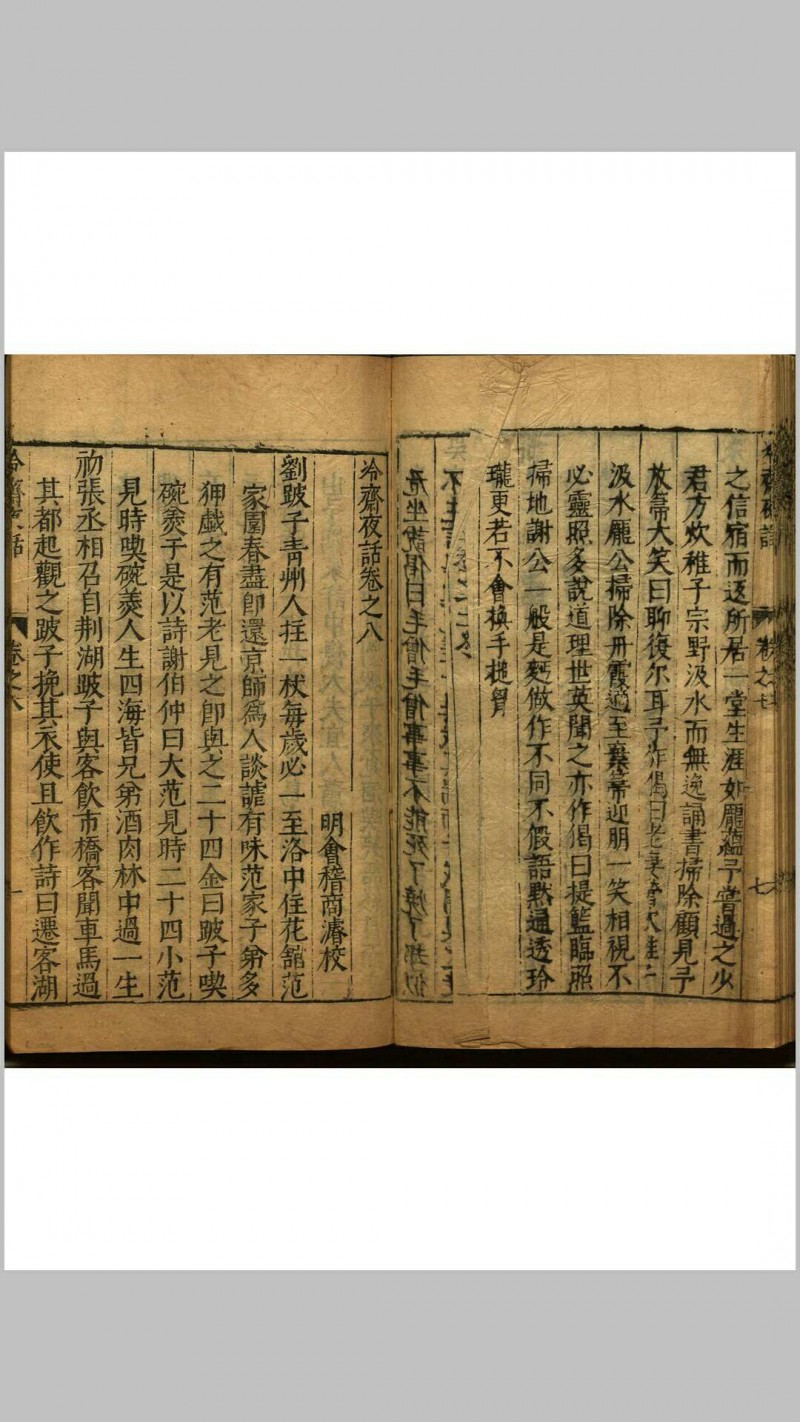 之信宿而返所居一堂生涯如龐蘊予嘗過之少
君方炊稚子宗野汲水而無逸誦書掃除顧見予
放帚大笑曰聊復尔耳予作偈曰老妻
汲水龐公掃除丹霞適至棄帚迎朋一笑相視不
必靈照多說道理世英聞之亦作偈曰提籃臨照
掃地謝公一般是麪做作不同不假語默通透玲
瓏更若不會換手搥胷
卷之七
七
冷齋夜話卷之八
明會稽商濬校
劉跛子青州人拄一杖每歲必一至洛中住花舘范
家園春盡即還京師爲人談謔有味范家子弟多
狎戲之有范老見之即與之二十四金曰跛子喫
碗羹于是以詩謝伯仲曰大范見時二十四小范
見時喫碗羹人生四海皆兄弟酒肉林中過一生
初張丞相召自荆湖跛子與客飲市橋客聞車馬過
其都起觀之跛子挽其衣使且飲作詩曰遷客湖